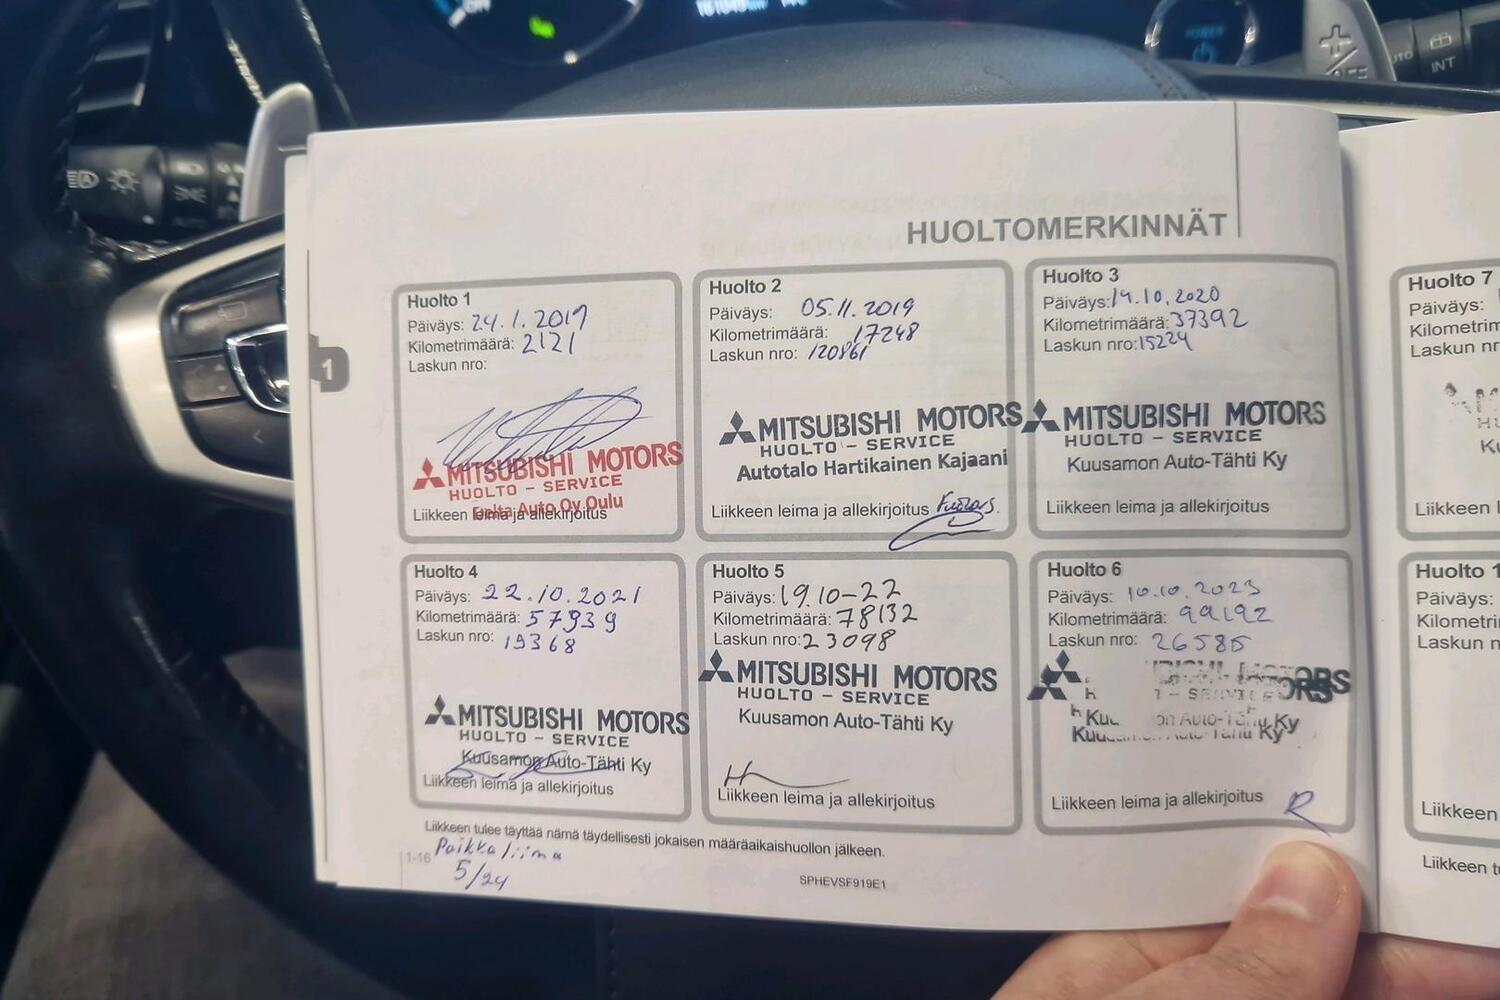 OFF
POWER
AUTO
INT
HUOLTOMERKINNÄT
1
Huolto 1
Päiväys: 24.1.2019
Kilometrimäärä: 2121
Laskun nro:
MITSUBISHI MOTORS
HUOLTO - SERVICE
Delta Auto Oy Oulu
Liikkeen leima ja allekirjoitus
Huolto 2
Päiväys: 05.11.2019
Kilometrimäärä: 17248
Laskun nro: 120861
MITSUBISHI MOTORS
HUOLTO - SERVICE
Autotalo Hartikainen Kajaani
Liikkeen leima ja allekirjoitus
Huolto 3
Päiväys: 19.10.2020
Kilometrimäärä: 37392
Laskun nro: 15224
MITSUBISHI MOTORS
HUOLTO - SERVICE
Kuusamon Auto-Tähti Ky
Liikkeen leima ja allekirjoitus
Huolto 4
Päiväys: 22.10.2021
Kilometrimäärä: 57939
Laskun nro: 19368
MITSUBISHI MOTORS
HUOLTO - SERVICE
Kuusamon Auto-Tähti Ky
Liikkeen leima ja allekirjoitus
Huolto 5
Päiväys: 19.10-22
Kilometrimäärä: 78132
Laskun nro: 23098
MITSUBISHI MOTORS
HUOLTO - SERVICE
Kuusamon Auto-Tähti Ky
Liikkeen leima ja allekirjoitus
Huolto 6
Päiväys: 10.10.2023
Kilometrimäärä: 99192
Laskun nro: 26585
MOTORS
SERVICE
Auto-Tähti Ky
Liikkeen leima ja allekirjoitus
R
Liikkeen tulee täyttää nämä täydellisesti jokaisen määräaikaishuollon jälkeen.
1-16 Paikkaliima
5/24
SPHEVSF919E1
Huolto 7
Päiväys:
Kilometrim
Laskun nr
Liikkeen l
Huolto 1
Päiväys:
Kilometri
Laskun n
Liikkeen
Liikkeen tu